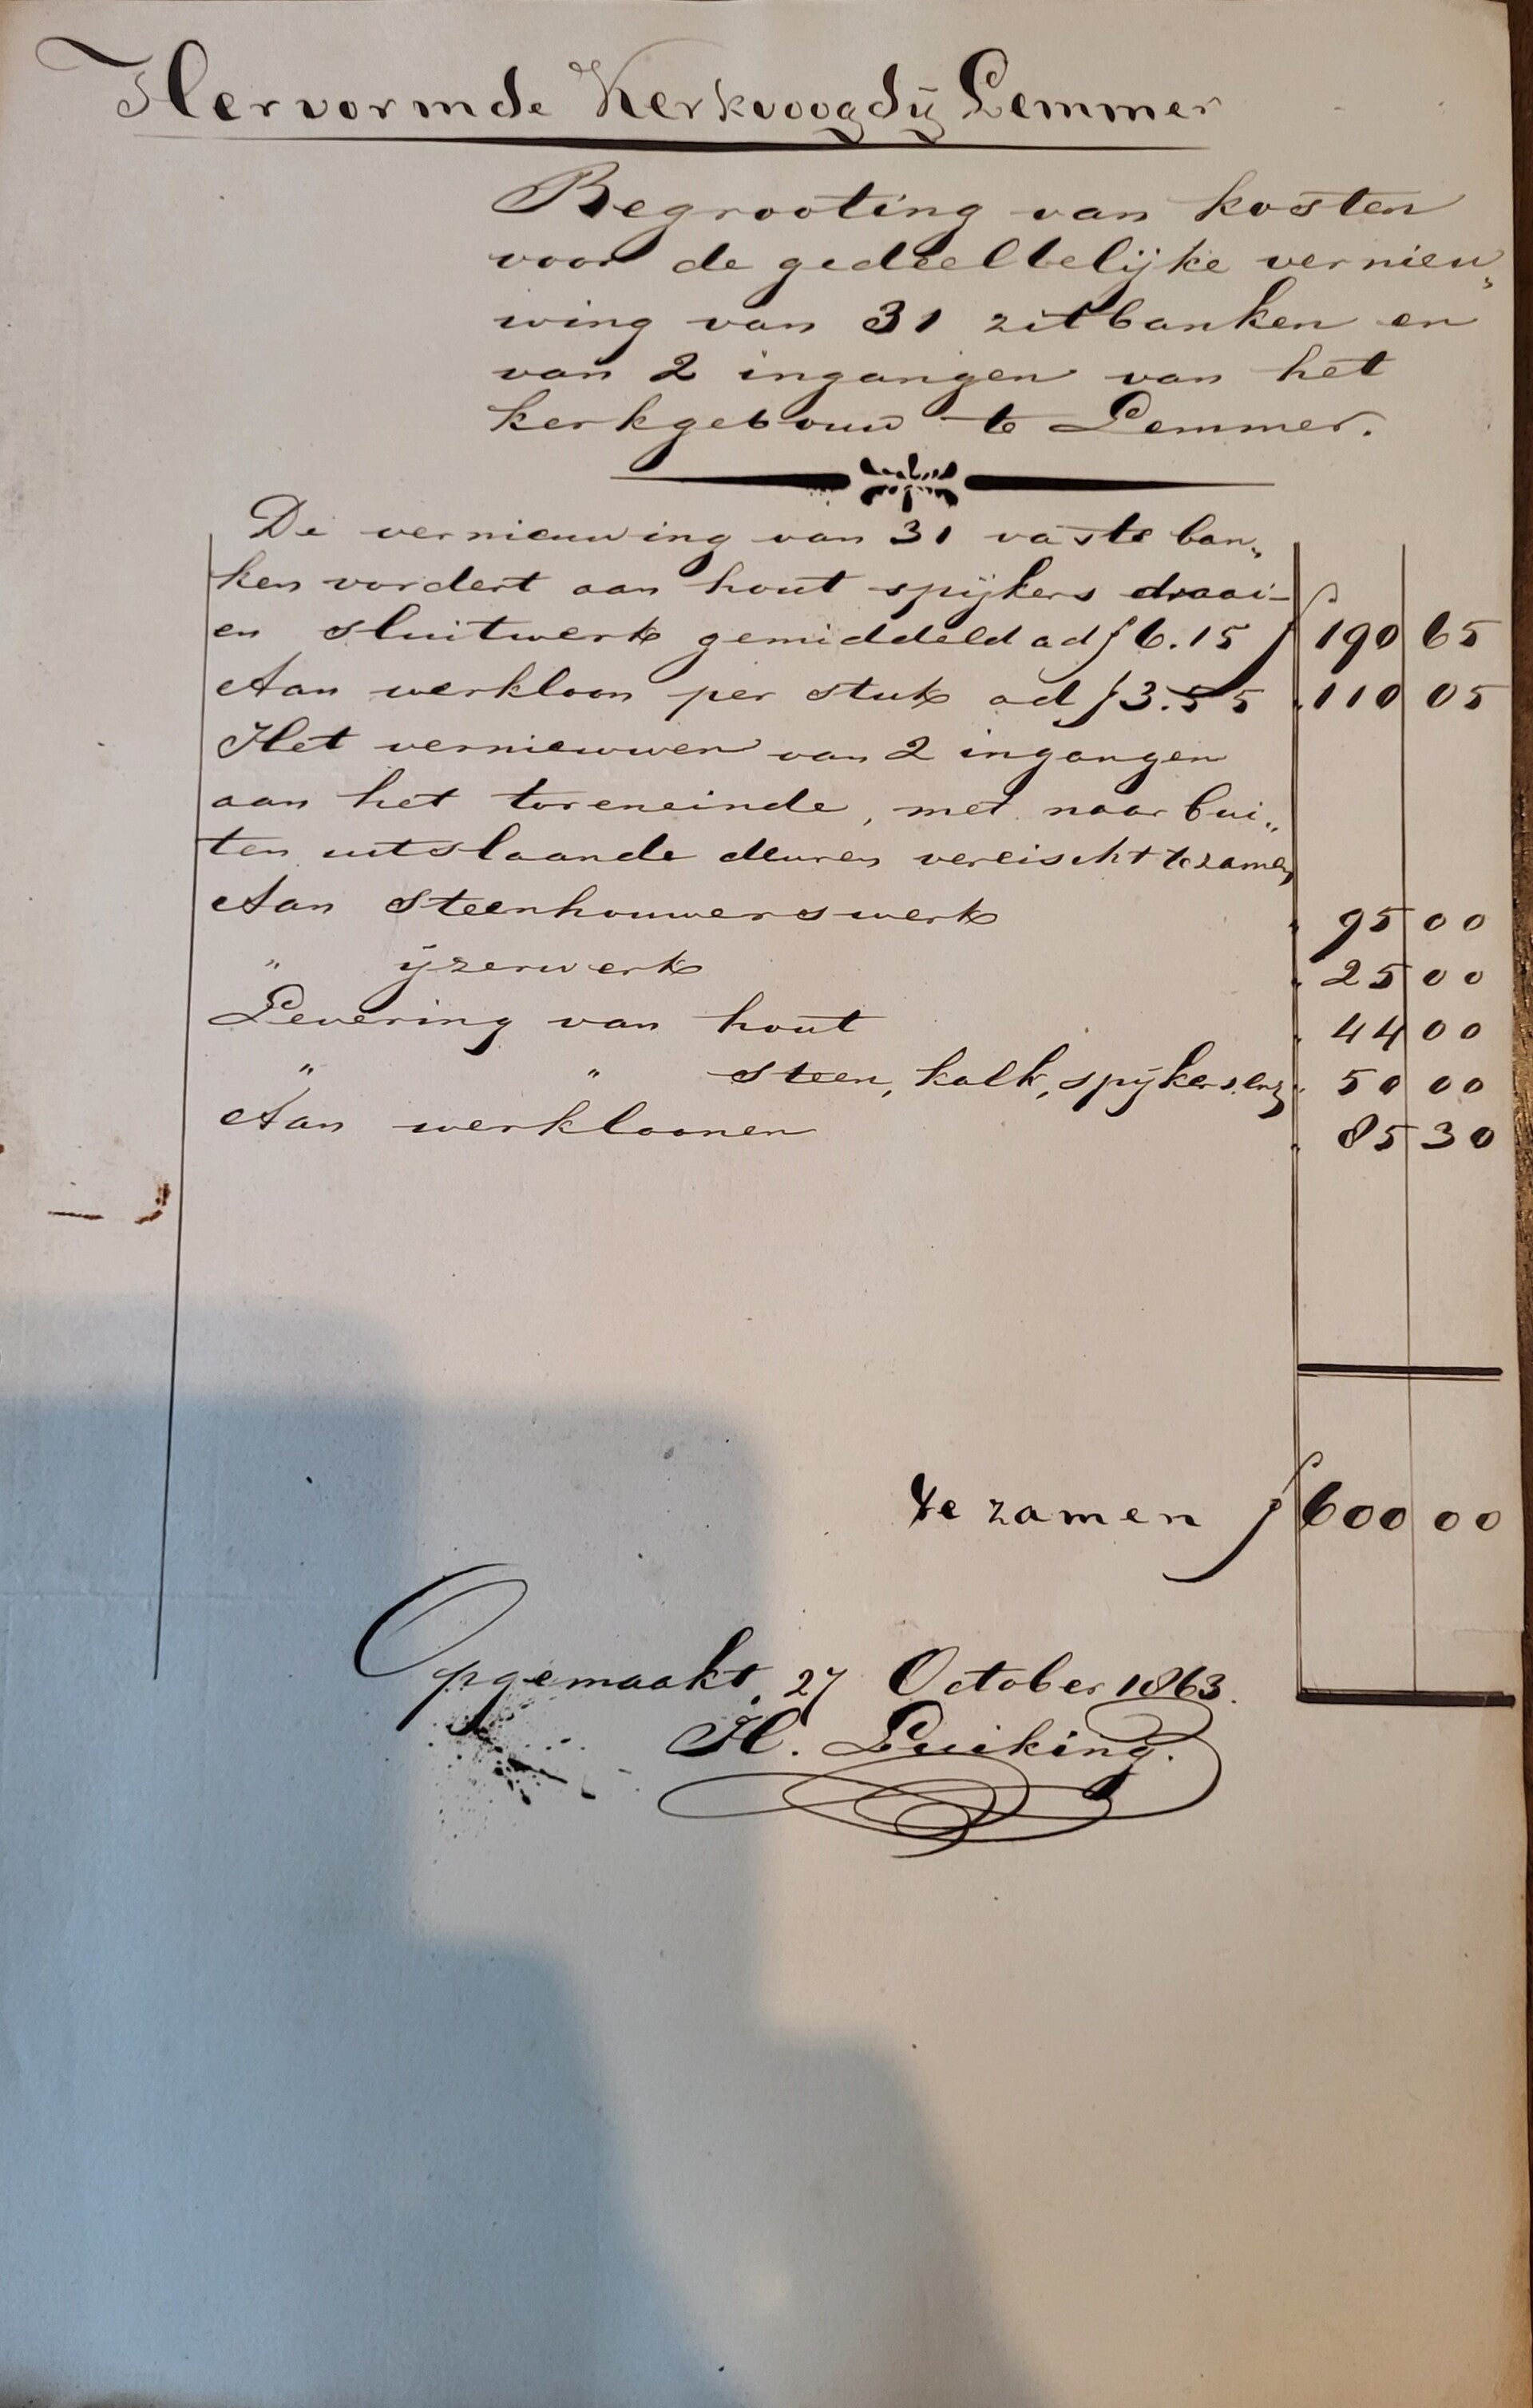 Hervormde Kerkvoogdij Lemmer
Begrooting van kosten
voor de gedeeltelijke vernieu„
wing van 31 zitbanken en
van 2 ingangen van het
kerkgebouw te Lemmer.
De vernieuwing van 31 vaste ban„
ken vordert aan hout spijkers draai-
en sluitwerk gemiddeld ad ƒ 6.15 ƒ 190 65
Aan werkloon per stuk ad ƒ 3.55 „ 110 05
Het vernieuwen van 2 ingangen
aan het toreneinde, met naar bui„
ten uitslaande deuren vereischt te zamen
Aan Steenhouwerswerk „ 95 00
„ ijzerwerk „ 25 00
Levering van hout „ 44 00
„ „ steen, kalk, spijkers enz „ 50 00
Aan werkloonen „ 85 30
te zamen ƒ 600 00
Opgemaakt, 27 October 1863.
H. Luiking.